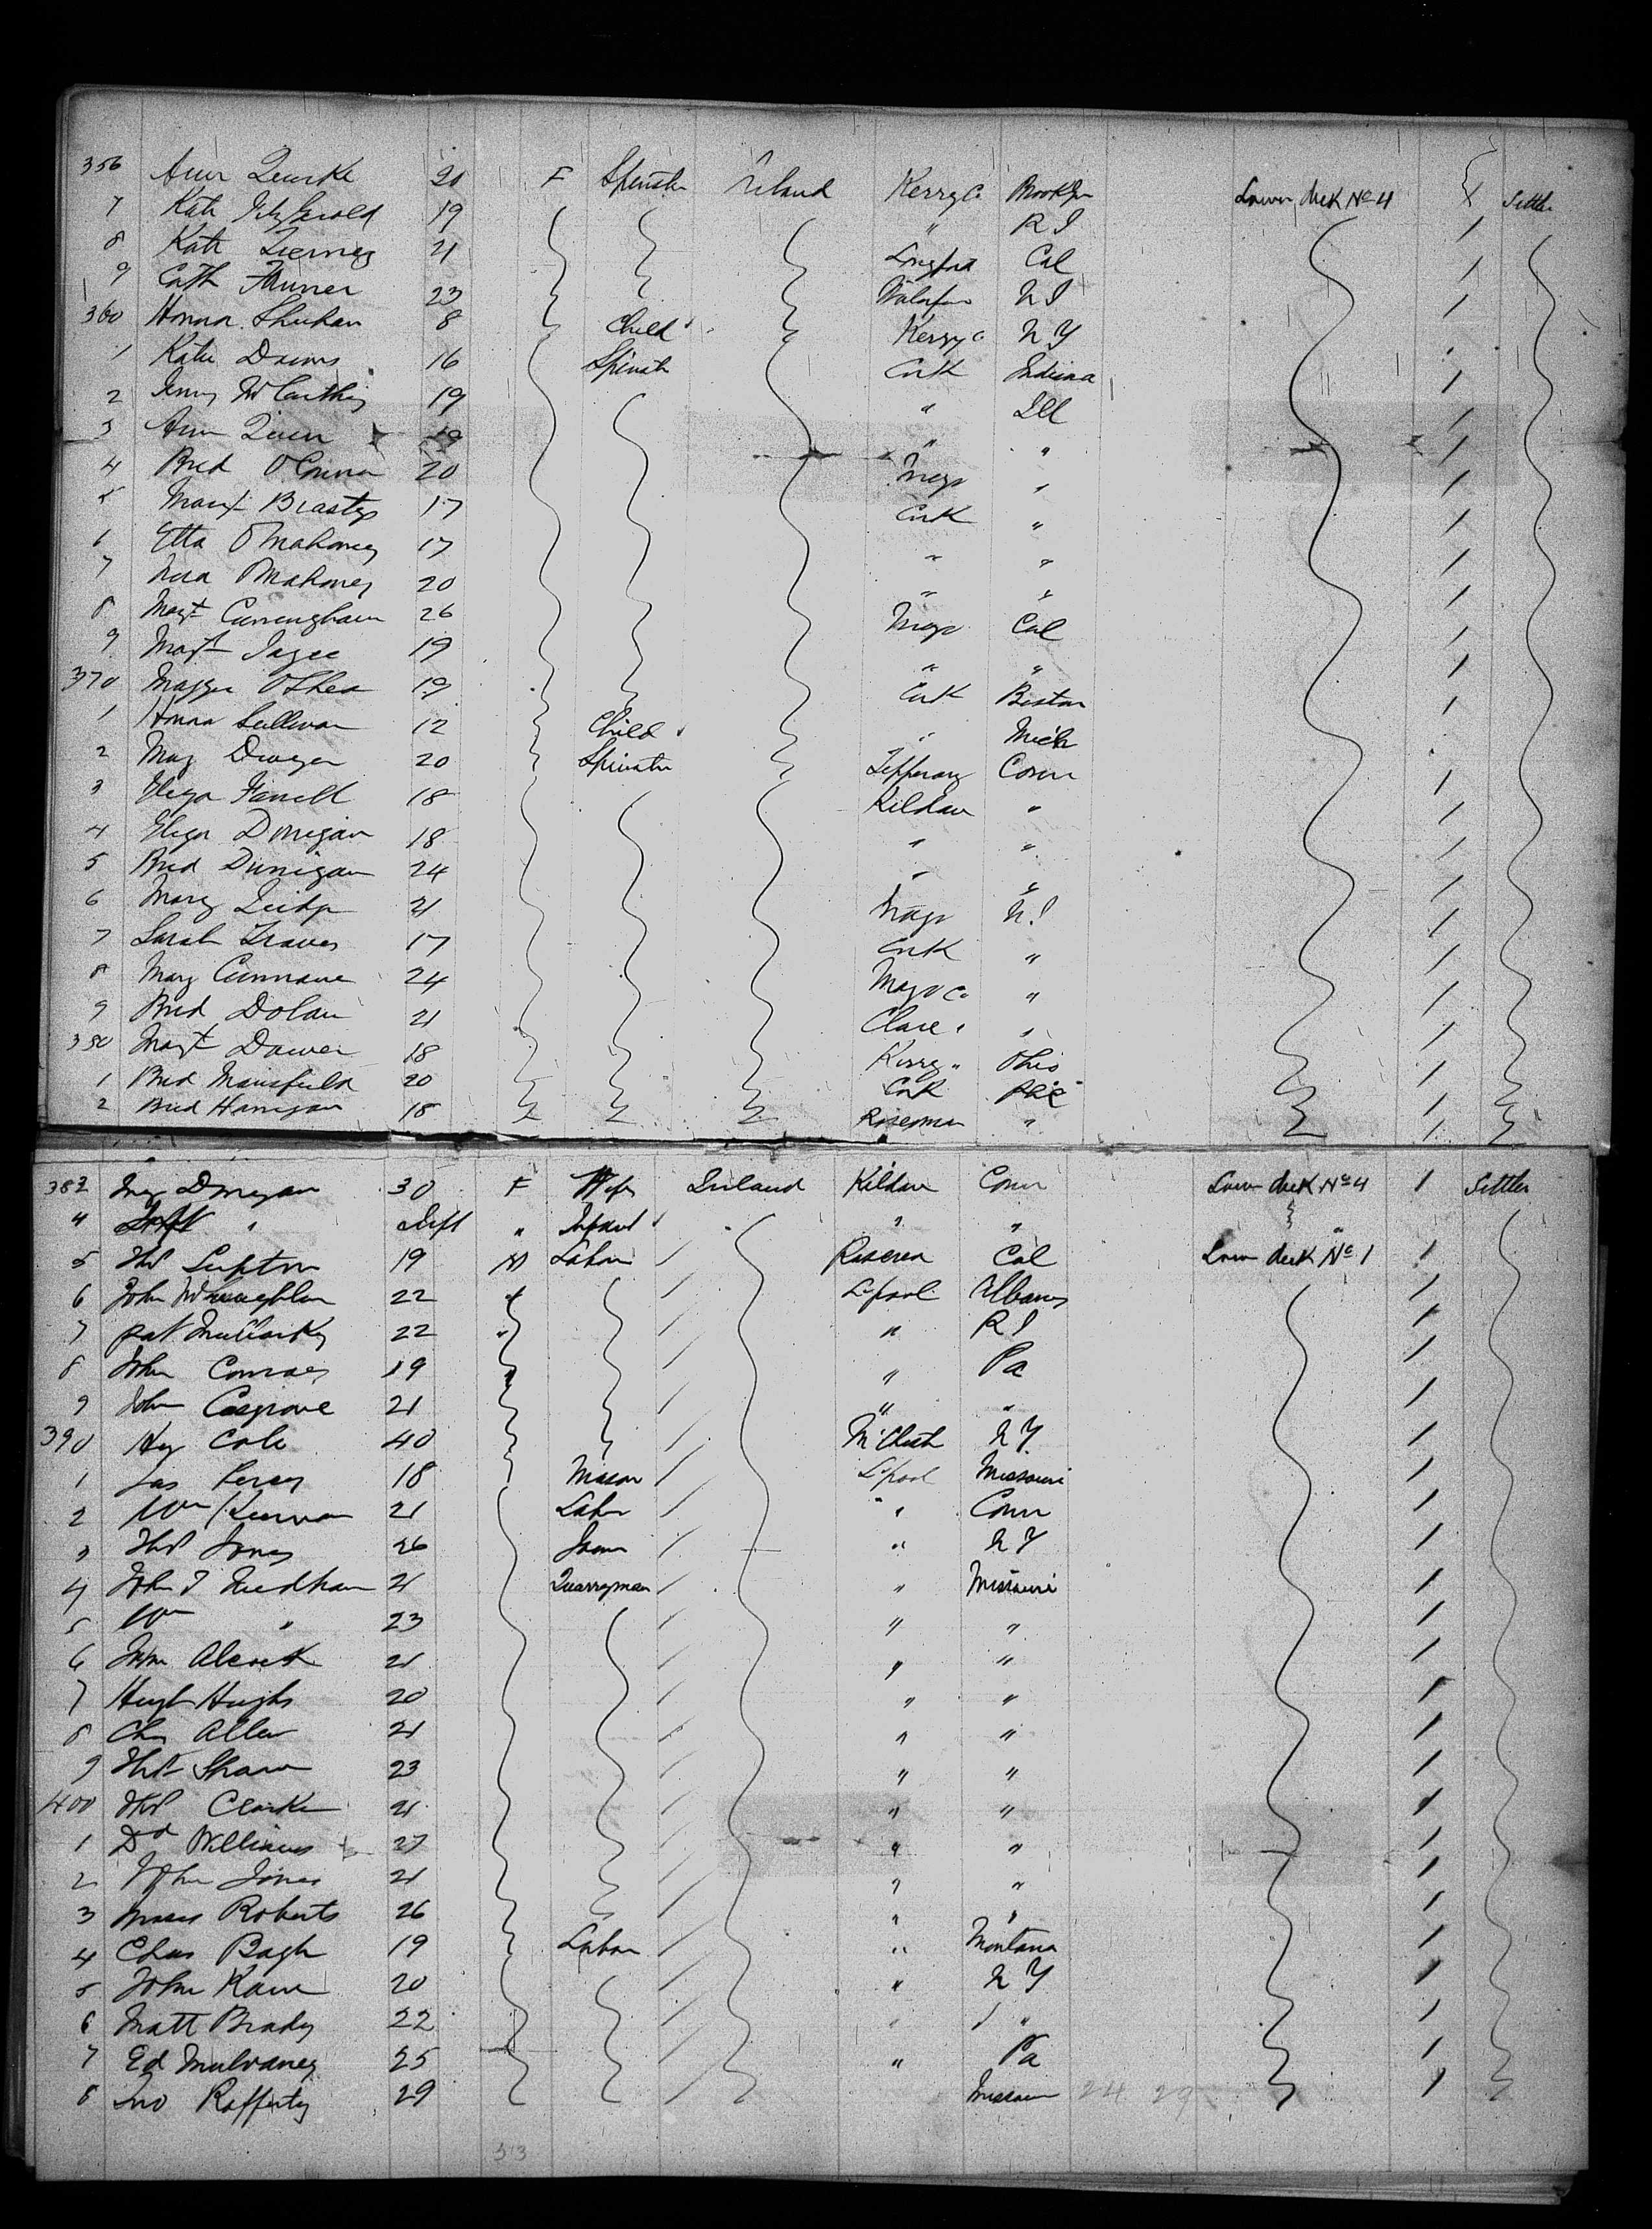 356 Ann Quirke 20 F Spinster Ireland Kerry Co Brooklyn Lower deck No 4 Settler
7 Kate Fitzgerald 19 " R I /
8 Kate Tierney 21 Longford Cal /
9 Cath 23 N J /
360 Honora Sheehan 8 Child Kerry Co N Y
1 Kate Downs 16 Spinster Cork Indiana /
2 McCarthy 19 " Ill /
3 Ann Quinn 19 " " /
4 Brid O'Connor 20 Mayo " /
5 Margt 17 Cork " /
6 Etta O'Mahoney 17 " " /
7 Nora O'Mahoney 20 " " /
8 Margt Cunningham 26 Mayo Cal /
9 Margt 19 " " /
370 Maggie O'Shea 19 Cork Boston /
1 Honora Sullivan 12 Child " Mich
2 Mary Dwyer 20 Spinster Tipperary Conn /
3 Eliza Farrell 18 Kildare " /
4 Eliza Donegan 18 " " /
5 Brid Dunigan 24 " " /
6 Mary 21 Mayo /
7 Sarah Travers 17 Cork " /
8 Mary Cunnane 24 Mayo Co " /
9 Brid Dolan 21 Clare " " /
380 Margt 18 Kerry " Ohio /
1 Brid Mansfield 20 Cork /
2 Brid Hannigan 18 " /
383 Donegan 30 F Wife Ireland Kildare Conn Lower deck No 4 / Settler
4 " Inft " Infant " " "
5 Thos Lupton 19 M Labor Roscrea Cal Lower deck No 1 /
6 John McLoughlin 22 " L'pool Albany /
7 Pat 22 " " R I /
8 John 19 " " Pa /
9 John Cosgrove 21 " " /
390 Hy Cole 40 M'Chest N Y /
1 Jas 18 Mason L'pool Missouri /
2 Wm Kiernan 21 Labor " Conn /
3 Thos Jones 26 " N Y /
4 John T Needham 21 Quarryman " Missouri /
5 Wm " 23 " " /
6 Alcock 21 " " /
7 Hugh Hughs 20 " " /
8 Chas Allen 21 " " /
9 Thos Shaw 23 " " /
400 Thos Clarke 21 " " /
1 Dd Williams 27 " " /
2 John Jones 21 " " /
3 Moses Roberts 26 " " /
4 Chas Bagh 19 Labor " Montana /
5 John Kane 20 " N Y /
6 Matt Brady 22 " " /
7 Ed Mulvaney 25 " Pa /
8 Jno Rafferty 29 Missouri 24 29 /